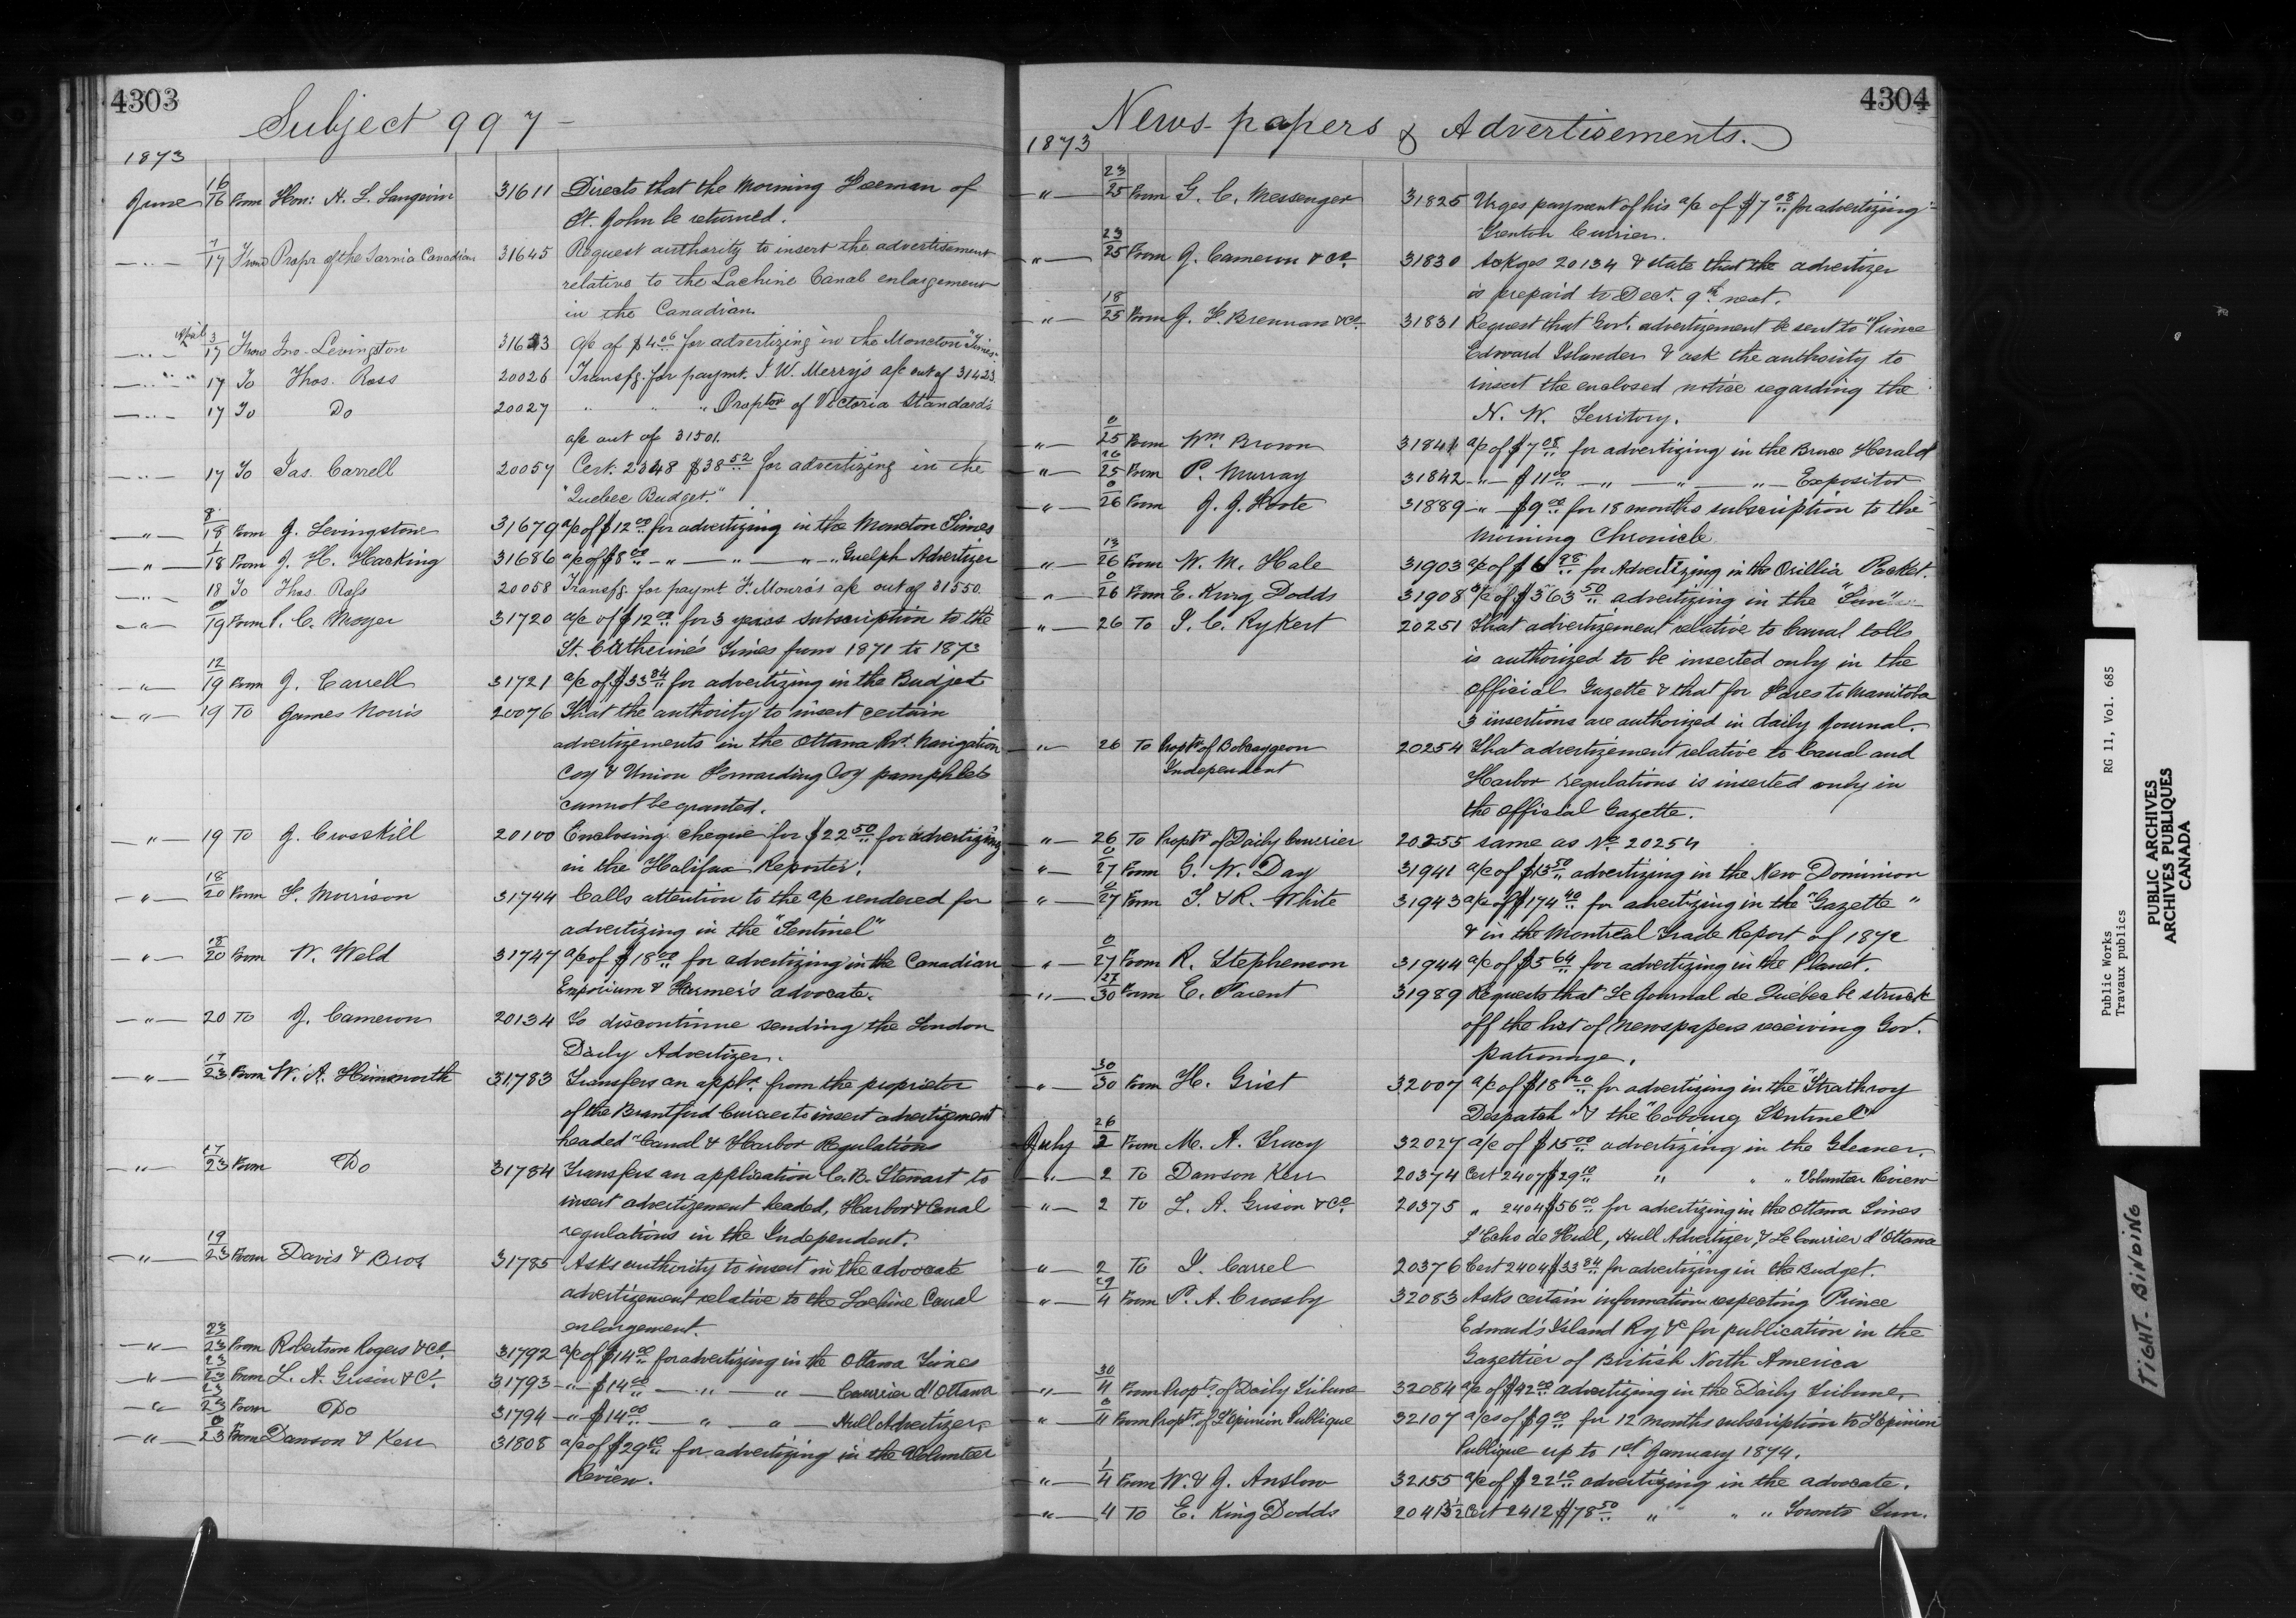 4303
Subject 997 -
1873
June 16/16 From Hon: H. L. Langevin 31611 Directs that the Morning Freeman of
St. John be returned.
-"- 7/17 From Propr of the Sarnia Canadian 31645 Request authority to insert the advertisement
relative to the Lachine Canal enlargement
in the Canadian.
-"- April 3/17 From Jno. Levingston a/c of $4.06 for advertizing in the Moncton "Times"
-"- 17 To Thos. Ross 20026 Transfg. for paymt. J. W. Merry's a/c out of 31423.
-"- 17 To Do 20027 " " " Proptor of Victoria Standard's
a/c out of 31501.
-"- 17 To Jas. Carrell 20057 Cert. 2348 $38.52 for advertizing in the
"Quebec Budget."
-"- 8/18 From J. Levingstone 31679 a/c of $12.00 for advertizing in the Moncton Times
-"- 1/18 From J. H. Hacking 31686 a/c of $8.00 -"- -"- -"- Guelph Advertizer
-"- 18 To Thos. Ross 20058 Transfg. for paymt F. Monro's a/c out of 31550.
-"- 0/19 From P. C. Moyer 31720 a/c of $12.00 for 3 years subscription to the
St. Catherine's Times from 1871 to 1873
-"- 12/19 From J. Carrell 31721 a/c of $33.84 for advertizing in the Budjet
-"- 19 To James Norris 20076 That the authority to insert certain
advertizements in the Ottawa Rr. Navigation
Coy & Union Forwarding Coy pamphlets
cannot be granted.
-"- 19 To J. Crosskill 20100 Enclosing cheque for $22.50 for advertizing
in the Halifax Reporter.
-"- 18/20 From F. Morrison 31744 Calls attention to the a/c rendered for
advertizing in the "Sentinel"
-"- 18/20 From W. Weld 31747 a/c of $18.00 for advertizing in the Canadian
Emporium & Farmer's advocate.
-"- 20 To J. Cameron 20134 To discontinue sending the London
Daily Advertizer.
-"- 17/23 From W. A. Himsworth 31783 Transfers an applt. from the proprietor
of the Brantford Currer to insert advertizement
headed "Canal & Harbor Regulations
-"- 17/23 From Do 31784 Transfers an application C. B. Stewart to
insert advertizement headed, Harbor & Canal
regulations in the Independent.
-"- 19/23 From Davis & Bros 31785 Asks authority to insert in the advocate
advertizement relative to the Lachine Canal
enlargement.
-"- 23/23 From Robertson Rogers & Co. 31792 a/c of $14.00 for advertizing in the Ottawa Times
-"- 23/23 From L. A. Grison & Co. 31793 -"- $14.00 -"- -"- Courrier d'Ottawa
-"- 23/23 From Do 31794 -"- $14.00 -"- -"- Hull Advertizer
-"- 0/23 From Dawson & Kerr 31808 a/c of $29.10 for advertizing in the Volunteer
Review.
4304
News-papers & Advertisements.
1873
-"- 23/25 From G. C. Messenger 31825 Urges payment of his a/c of $7.08 for advertizing
Trenton Currier.
-"- 23/25 From J. Cameron & Co. 31830 Ackges 20134 & state that the advertizer
is prepaid to Dect. 9th next.
-"- 18/25 From J. F. Brennan & Co. 31831 Request that Govt. advertizement be sent to "Prince
Edward Islander & ask the authority to
insert the enclosed notice regarding the
N. W. Territory.
-"- 0/25 From Wm Brown 31841 a/c of $7.08 for advertizing in the Bruce Herald
-"- 16/25 From P. Murray 31842 -"- $11.00 -"- -"- -"- Expositor
-"- 0/26 From J. J. Foote 31889 -"- $9.00 for 18 months subscription to the
Morning Chronicle
-"- 13/26 From W. M. Hale 31903 a/c of $6.98 for Advertizing in the Orillia Packet.
-"- 0/26 From E. King Dodds 31908 a/c of $363.50 advertizing in the "Sun"
-"- 26 To J. C. Rykert 20251 That advertizement relative to Canal tolls
is authorized to be inserted only in the
Official Gazette & that for Fares to Manitoba
3 insertions are authorized in daily Journal.
-"- 26 To Proptr of Bobcaygeon 20254 That advertizement relative to Canal and
Independent Harbor regulations is inserted only in
the Official Gazette.
-"- 26 To Proptr of Daily Courrier 20255 same as No. 20254
-"- 0/27 From G. W. Day 31941 a/c of $13.50 advertizing in the New Dominion
-"- 0/27 From T. & R. White 31943 a/c of $174.40 for avertizing in the "Gazette"
& in the Montreal Trade Report of 1872
-"- 0/27 From R. Stephenson 31944 a/c of $5.64 for advertizing in the Planet.
-"- 27/30 From E. Parent 31989 Requests that Le Journal de Québec be struck
off the list of Newspapers receiving Govt.
patronage.
-"- 30/30 From H. Grist 32007 a/c of $18.20 for advertizing in the "Strathroy
Despatch" & the "Cobourg Sentinel"
July 26/2 From M. A. Tracy 32027 a/c of $15.00 advertizing in the Gleaner.
-"- 2 To Dawson Kerr 20374 Cert 2407 $29.10 " " " Volunteer Review
-"- 2 To L. A. Grison & Co. 20375 " 2404 $56.00 for advertizing in the Ottawa Times
L'Echo de Hull, Hull Advertizer, & Le Courrier d'Ottawa
-"- 2 To J. Carrel 20376 Cert 2404 $33.84 for advertizing in the Budget.
-"- 29/4 From P. A. Crossby 32083 Asks certain information respecting Prince
Edward's Island Ry &c for publication in the
Gazettier of British North America
-"- 30/4 From Proptr. of Daily Tribune 32084 a/c of $42.00 advertizing in the Daily Tribune.
-"- 0/4 From Proptr. of L'Opinion Publique 32107 a/cs of $9.00 for 12 months subscription to L'Opinion
Publique up to 1st January 1874.
-"- 1/4 From W. & J. Anslow 32155 a/c of $22.10 advertizing in the advocate.
-"- 4 To E. King Dodds Cert 2412 $78.50 " " " Toronto Sun.
Public Works RG 11, Vol. 685
Travaux publics
PUBLIC ARCHIVES
ARCHIVES PUBLIQUES
CANADA
TIGHT-BINDING